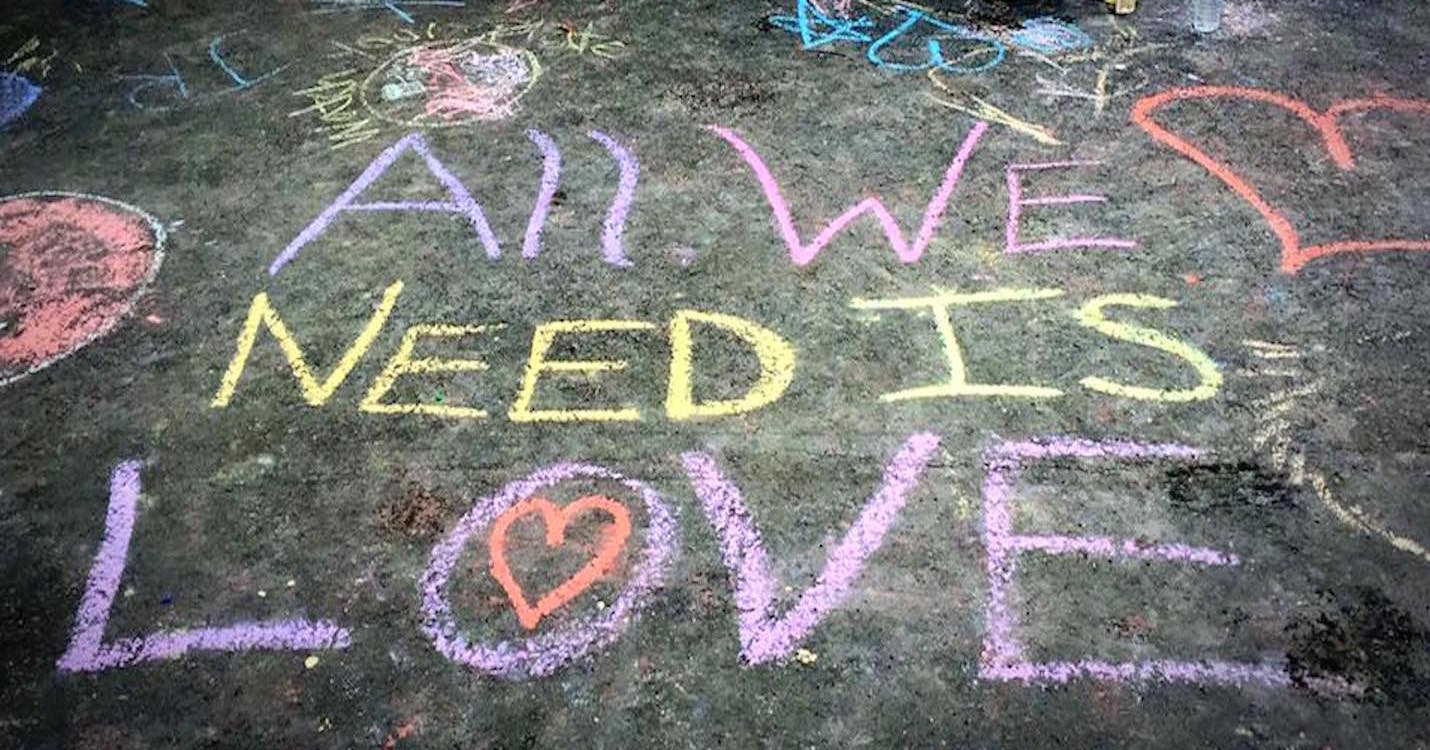 All WE
NEED IS
LOVE